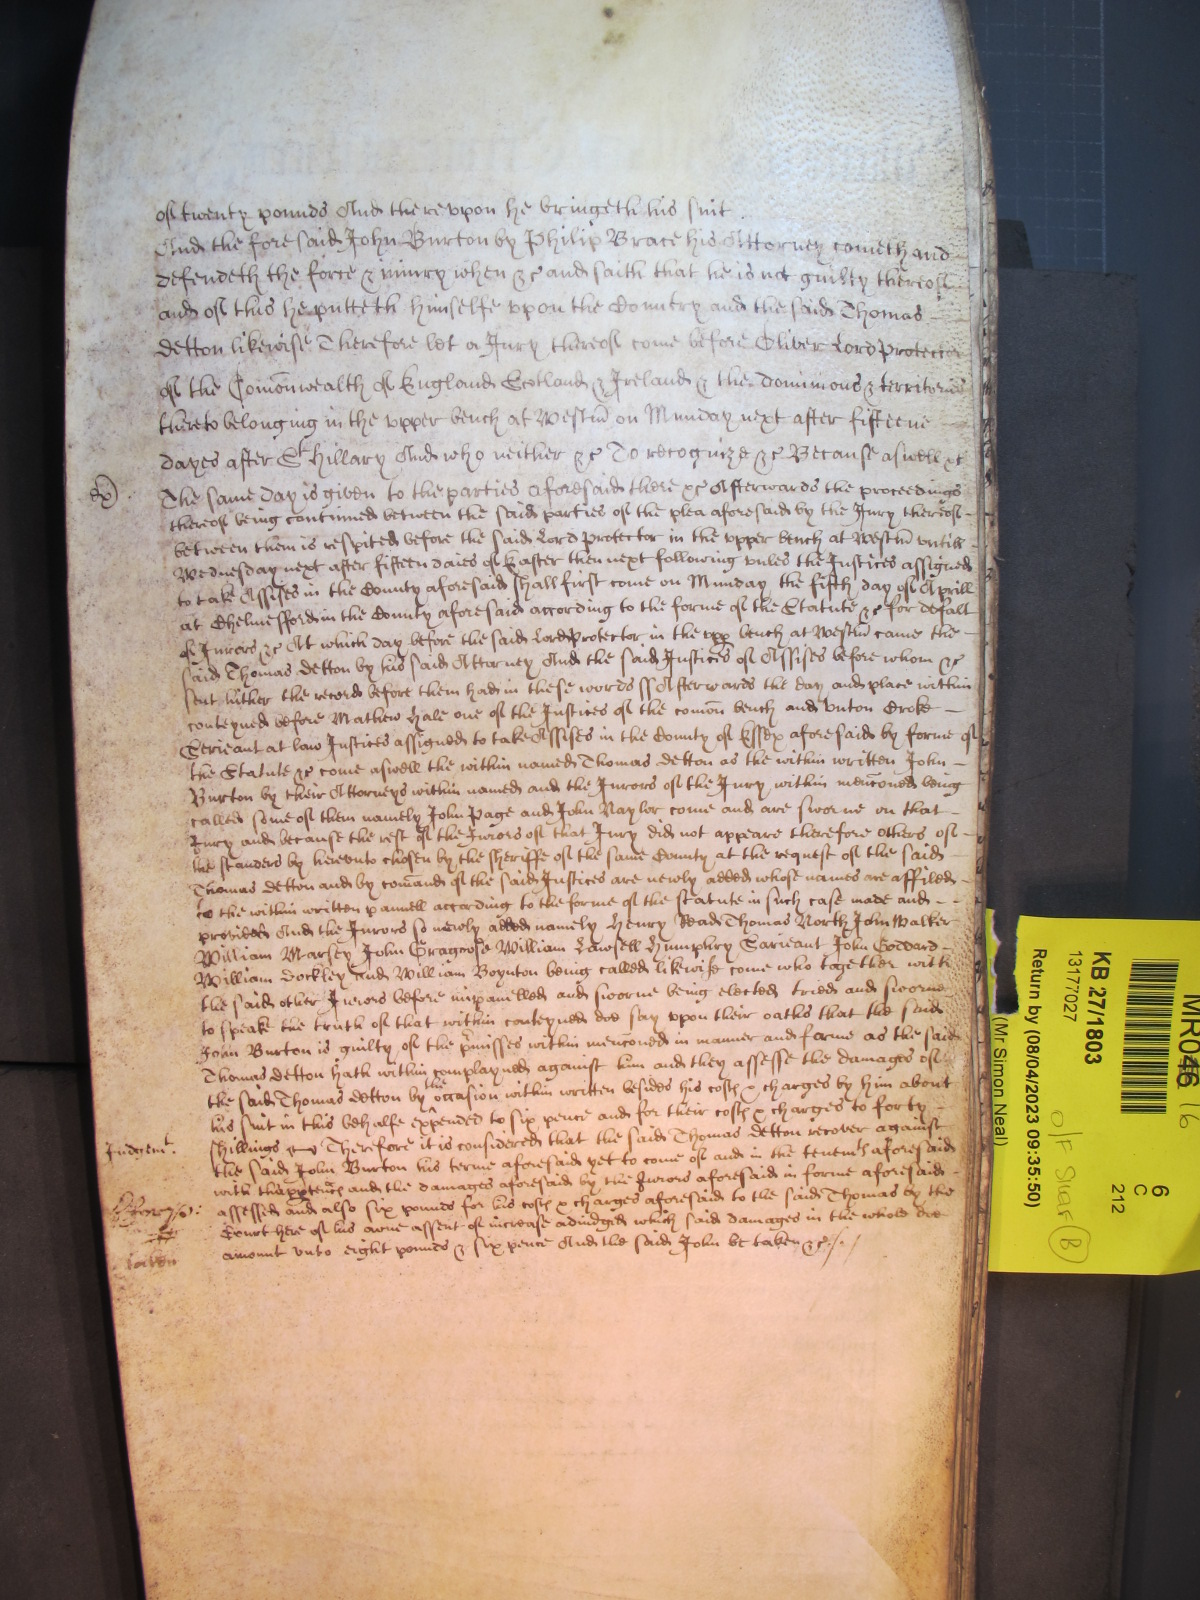 of twenty pounds And thereupon he bringeth his suit
And the foresaid John Burton by Philip Brace his Attorney cometh and
defendeth the force & iniury when &c and saith that he is not guilty thereof
and of this he putteth himselfe upon the Country and the said Thomas
Detton likewise Therefore let a Jury thereof come before Oliver Lord Protector
of the Com̄onwealth of England Scotland & Ireland & the dominions & territories
thereto belonging in the upper bench at Westm̄ on Munday next after fifteene
dayes after St Hillary And who neither &c To recognize &c Because aswell &c
The same day is given to the parties aforesaid there &c Afterwards the proceedings
thereof being continued between the said parties of the plea aforesaid by the Jury thereof
between them is respited before the said Lord Protector in the upper bench at Westm̄ untill
Wednesday next after fifteen daies of Easter then next following unles the Justices assigned
to take Assises in the County aforesaid shall first come on Munday the fifth day of Aprill
at Chelmesford in the County aforesaid according to the forme of the Statute &c for default
of Jurors &c At which day before the said Lord Protector in the upp bench at Westm̄ came the
said Thomas Detton by his said Attorney And the said Justices of Assises before whom &c
sent hither the record before them had in these words ss Afterwards the day and place within
conteyned before Mathew Hale one of the Justices of the com̄on bench and Unton Croke
Serieant at law Justices assigned to take Assises in the County of Essex aforesaid by forme of
the Statute &c come aswell the within named Thomas Detton as the within written John
Burton by their Attorneys within named and the Jurors of the Jury within menc̄oned being
called some of them namely John Page and John Naylor come and are sworne on that
Jury and because the rest of the Jurors of that Jury did not appeare therefore others of
the standers by hereunto chosen by the sheriffe of the same County at the request of the said
Thomas Detton and by com̄and of the said Justices are newly added whose names are affiled
to the within written pannell according to the forme of the statute in such case made and
provided And the Jurors so newly added namely Henry Read Thomas North John Walker
William Marsey John William Lawsell Humphry Sarieant John Goddard
William Dockley And William Boynton being called likewise come who together with
the said other Jurors before impanelled and sworne being elected tried and sworne
to speake the truth of that within conteyned doe say upon their oaths that the said
John Burton is guilty of the p̄misses within menc̄oned in manner and forme as the said
Thomas Detton hath within complayned against him and they assesse the damages of
the said Thomas Detton by the occasion within written besides his costs & charges by him about
his suit in this behalfe expended to six pence and for their costs & charges to forty
Judgemt. shillings Therefore it is considered that the said Thomas Detton recover against
the said John Burton his terme aforesaid yet to come of and in the tenemts aforesaid
with thapptenc̄s and the damages aforesaid by the Jurors aforesaid in forme aforesaid
assessed and also six pounds for his costs & charges aforesaid to the said Thomas by the
Court here of his owne assent of increase adiudged which said damages in the whole doe
amount unto eight pounds & six pence And the said John be taken &c
taken
MR046
KB 27/1803
13177027
Return by (08/04/2023 09:35:50)
(Mr Simon Neal)
6
C
212
16
B